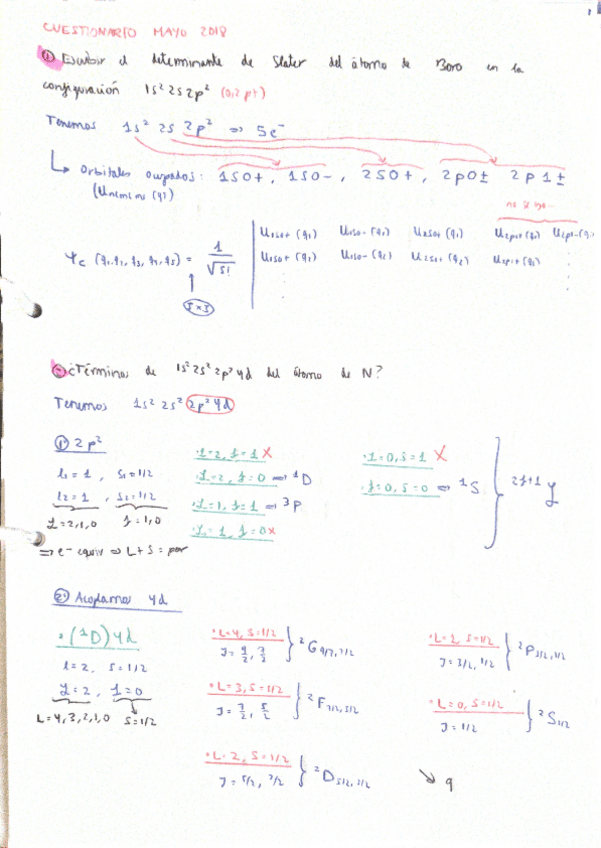 CUESTIONARIO MAYO 2018
① Escribir el determinante de Slater del átomo de Boro en la
configuración 1s² 2s 2p² (0,2 pt)
Tenemos 1s² 2s 2p² ⇒ 5e⁻
↳ Orbitales ocupados: 1s0+, 1s0-, 2s0+, 2p0± 2p1±
ψc (q1, q2, q3, q4, q5) = 1/√5! | U1s0+(q1) U1s0-(q1) U2s0+(q1)
U1s0+(q2) U1s0-(q2) U2s0+(q2)
5×5
¿Términos de 1s² 2s² 2p² 4d del átomo de N?
Tenemos 1s² 2s² 2p² 4d
1) 2p²
l1 = 1, s1 = 1/2
l2 = 1, s2 = 1/2
L = 2,1,0 S = 1,0
⇒ e⁻ equiv ⇒ L+S = par
· L=2, S=1 X
· L=2, S=0 ⇒ ¹D
· L=1, S=1 ⇒ ³P
· L=1, S=0 x
· L=0, S=1 X
· S=0, S=0 ⇒ ¹S
2) Acoplamos 4d
· (¹D) 4d
l=2, s=1/2
L=2, S=0
L=4,3,2,1,0 S=1/2
· L=4, S=1/2
J = 9/2, 7/2 } ²G 9/2, 7/2
· L=3, S=1/2
J = 7/2, 5/2 } ²F 7/2, 5/2
· L=2, S=1/2
J = 5/2, 3/2 } ²D 5/2, 3/2
· L=2, S=1/2
J = 3/2, 1/2 } ²P 3/2, 1/2
· L=0, S=1/2
J = 1/2 } ²S 1/2
↘ 9